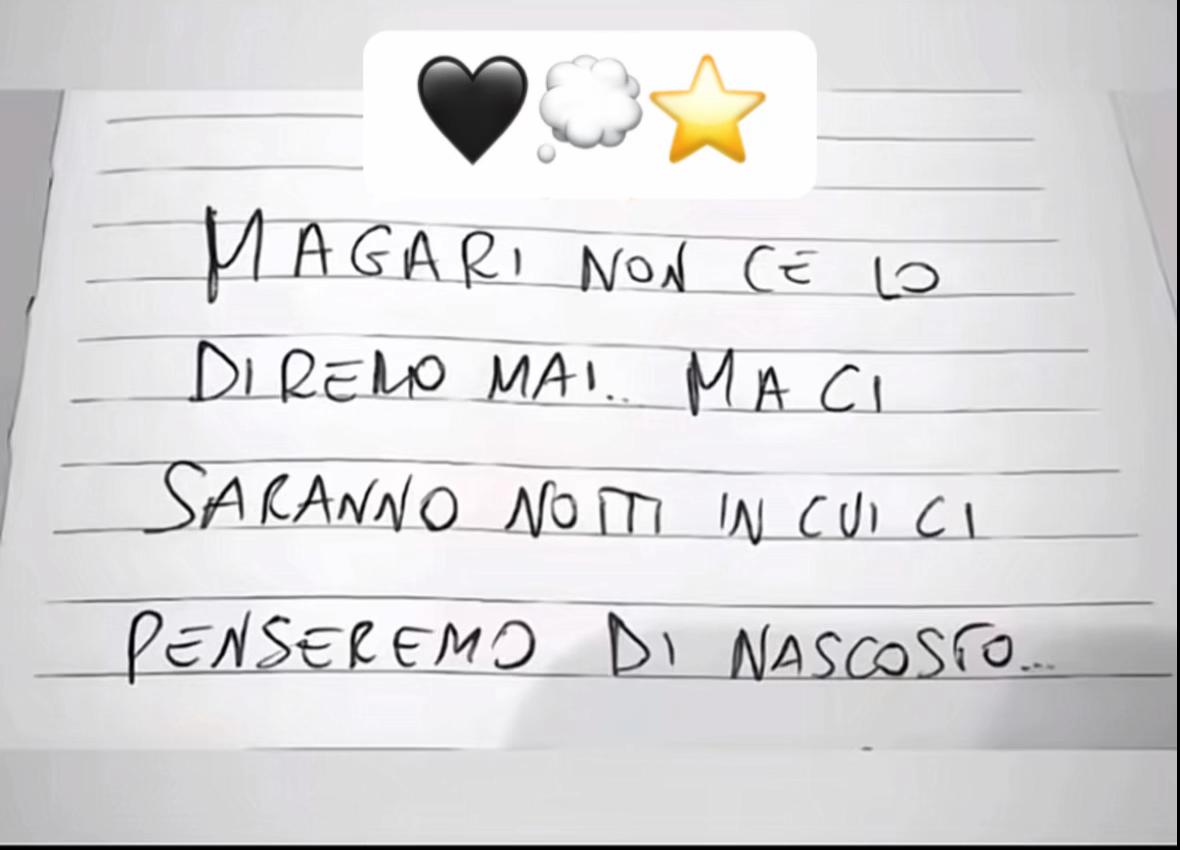 🖤💭⭐
MAGARI NON CE LO
DIREMO MAI.. MA CI
SARANNO NOTTI IN CUI CI
PENSEREMO DI NASCOSTO...